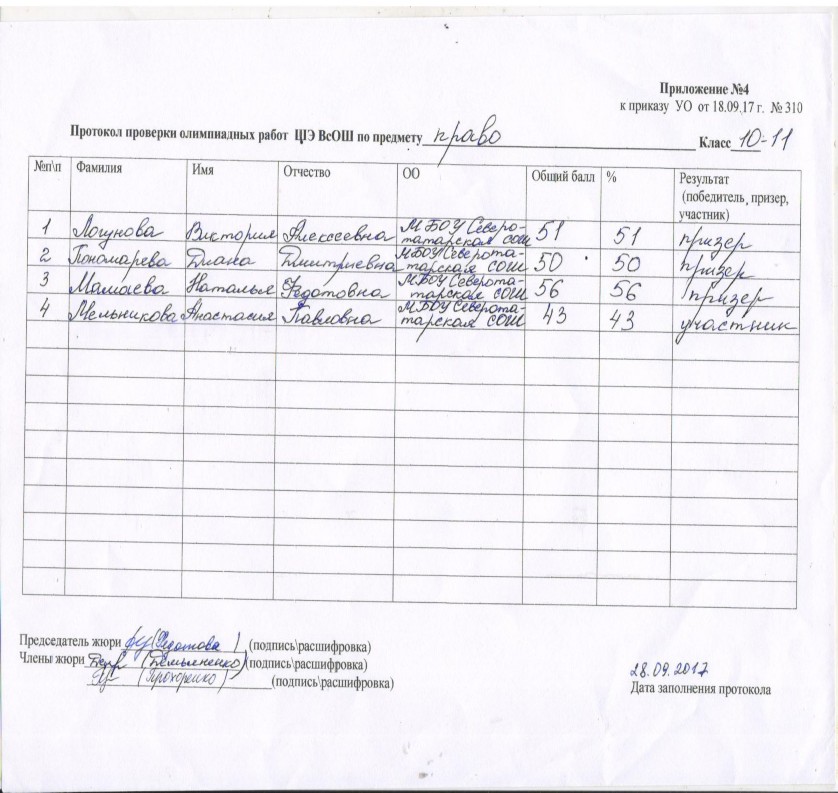 Приложение №4
к приказу УО от 18.09.17 г. № 310
Протокол проверки олимпиадных работ ЦІЭ ВсОШ по предмету право Класс 10-11
№п\п Фамилия Имя Отчество ОО Общий балл % Результат
(победитель, призер,
участник)
1 Логунова Виктория Алексеевна МБОУ Северо-
татарская сош 51 51 призер
2 Пономарева Диана Дмитриевна МБОУ Северота-
тарская СОШ 50 50 призер
3 Мамаева Наталья Федотовна МБОУ Северота-
тарская СОШ 56 56 призер
4 Мельникова Анастасия Павловна МБОУ Северота-
тарская СОШ 43 43 участник
Председатель жюри (Федотова) (подпись\расшифровка)
Члены жюри (Демьяненко) (подпись\расшифровка)
(Прохоренко) (подпись\расшифровка)
28.09.2017
Дата заполнения протокола